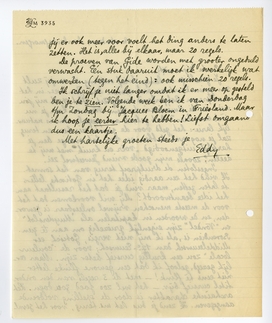 3935
jij er ook meer voor voelt het ding anders te laten
zetten. Het is alles bij elkaar, maar 20 regels.
De proeven van Gide worden met groote ongeduld
verwacht. Een stuk daaruit moet ik werkelijk wat
omwerken (tegen het eind); ook misschien 20 regels.
Ik schrijf je niet langer omdat ik er op gesteld
ben je te zien. Volgende week ben ik van donderdag
tot Zondag bij Bloem in Friesland. Maar
ik hoop je eerder hier te hebben! Liefst omgaand
dus een kaartje.
Met hartelijke groeten steeds je
Eddy